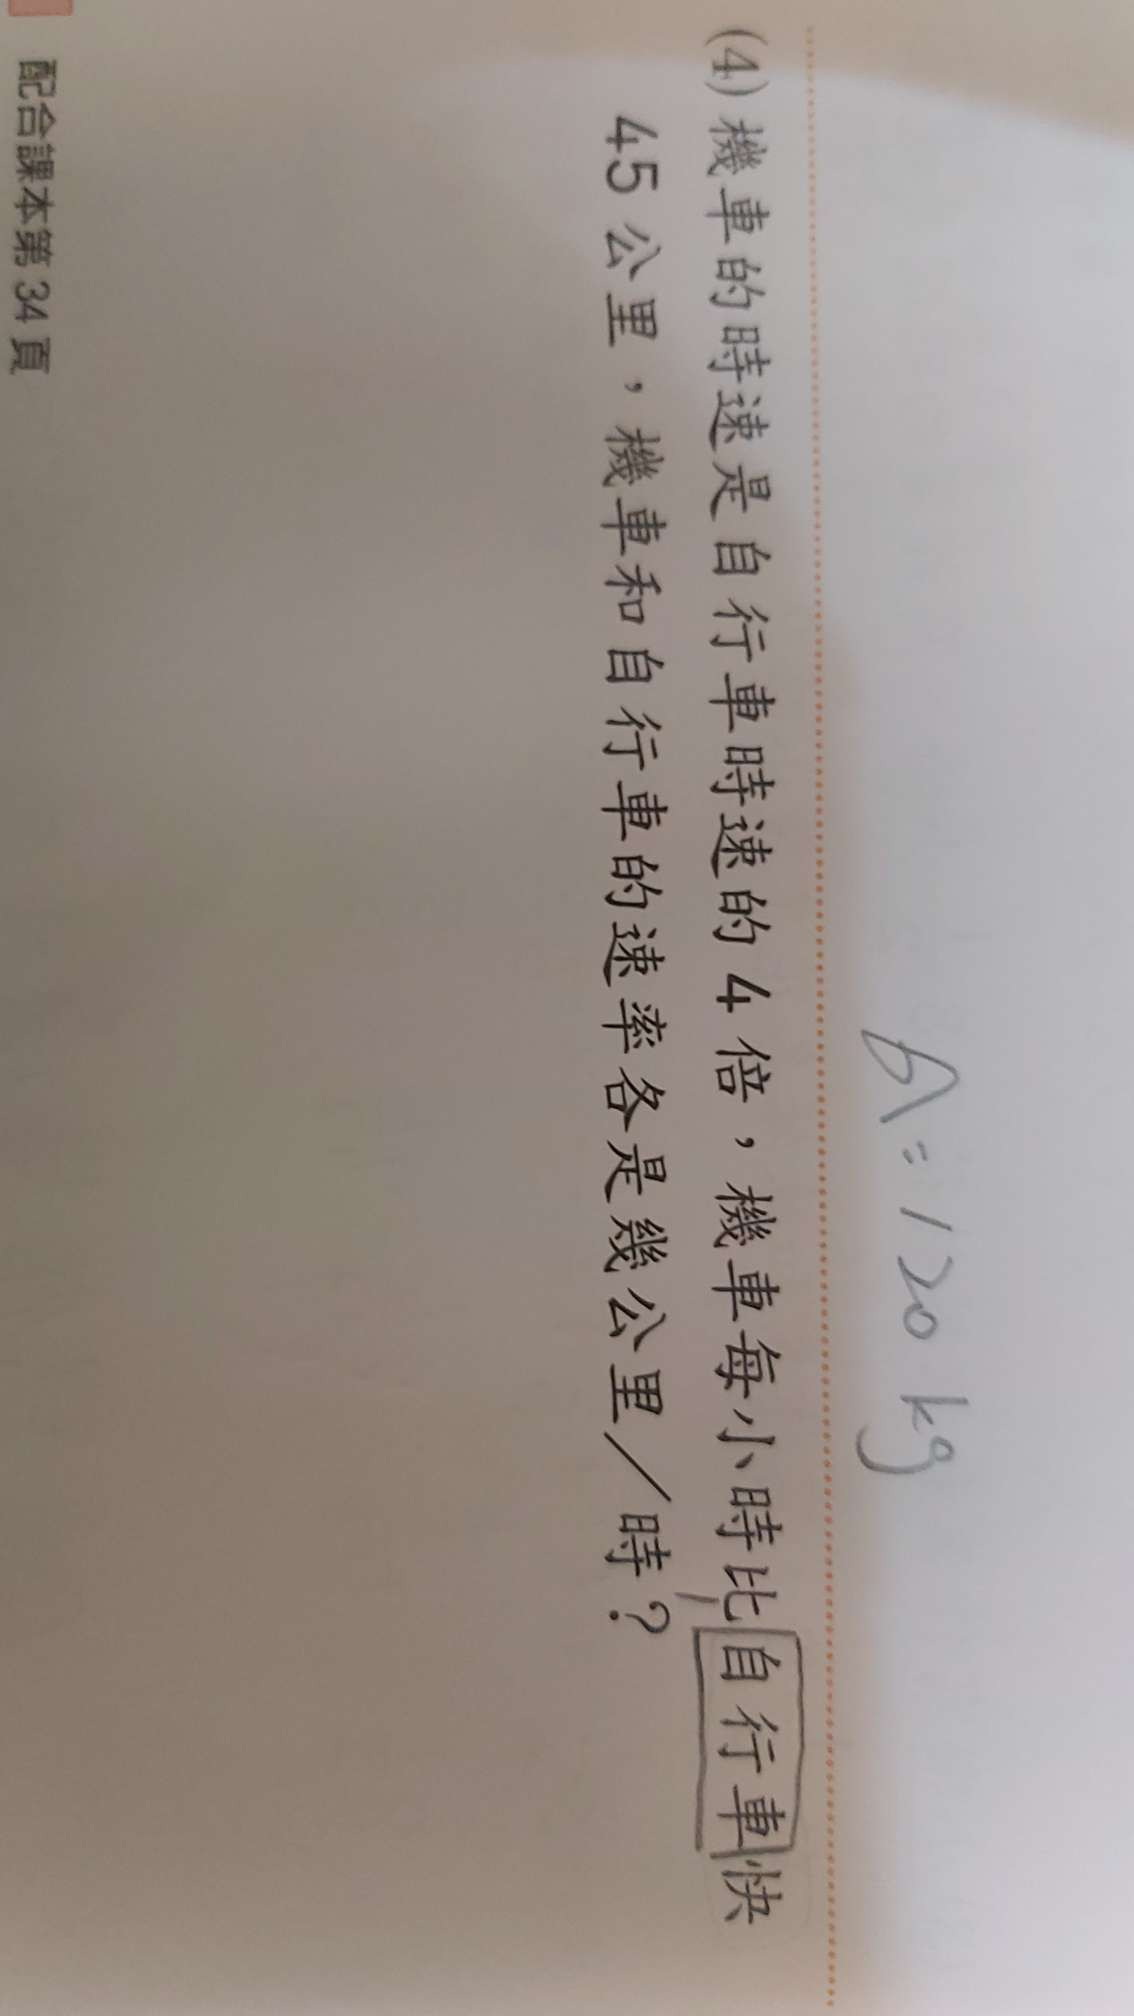 A=120 kg
(4) 機車的時速是自行車時速的4倍，機車每小時比自行車快
45公里，機車和自行車的速率各是幾公里／時？
配合課本第34頁